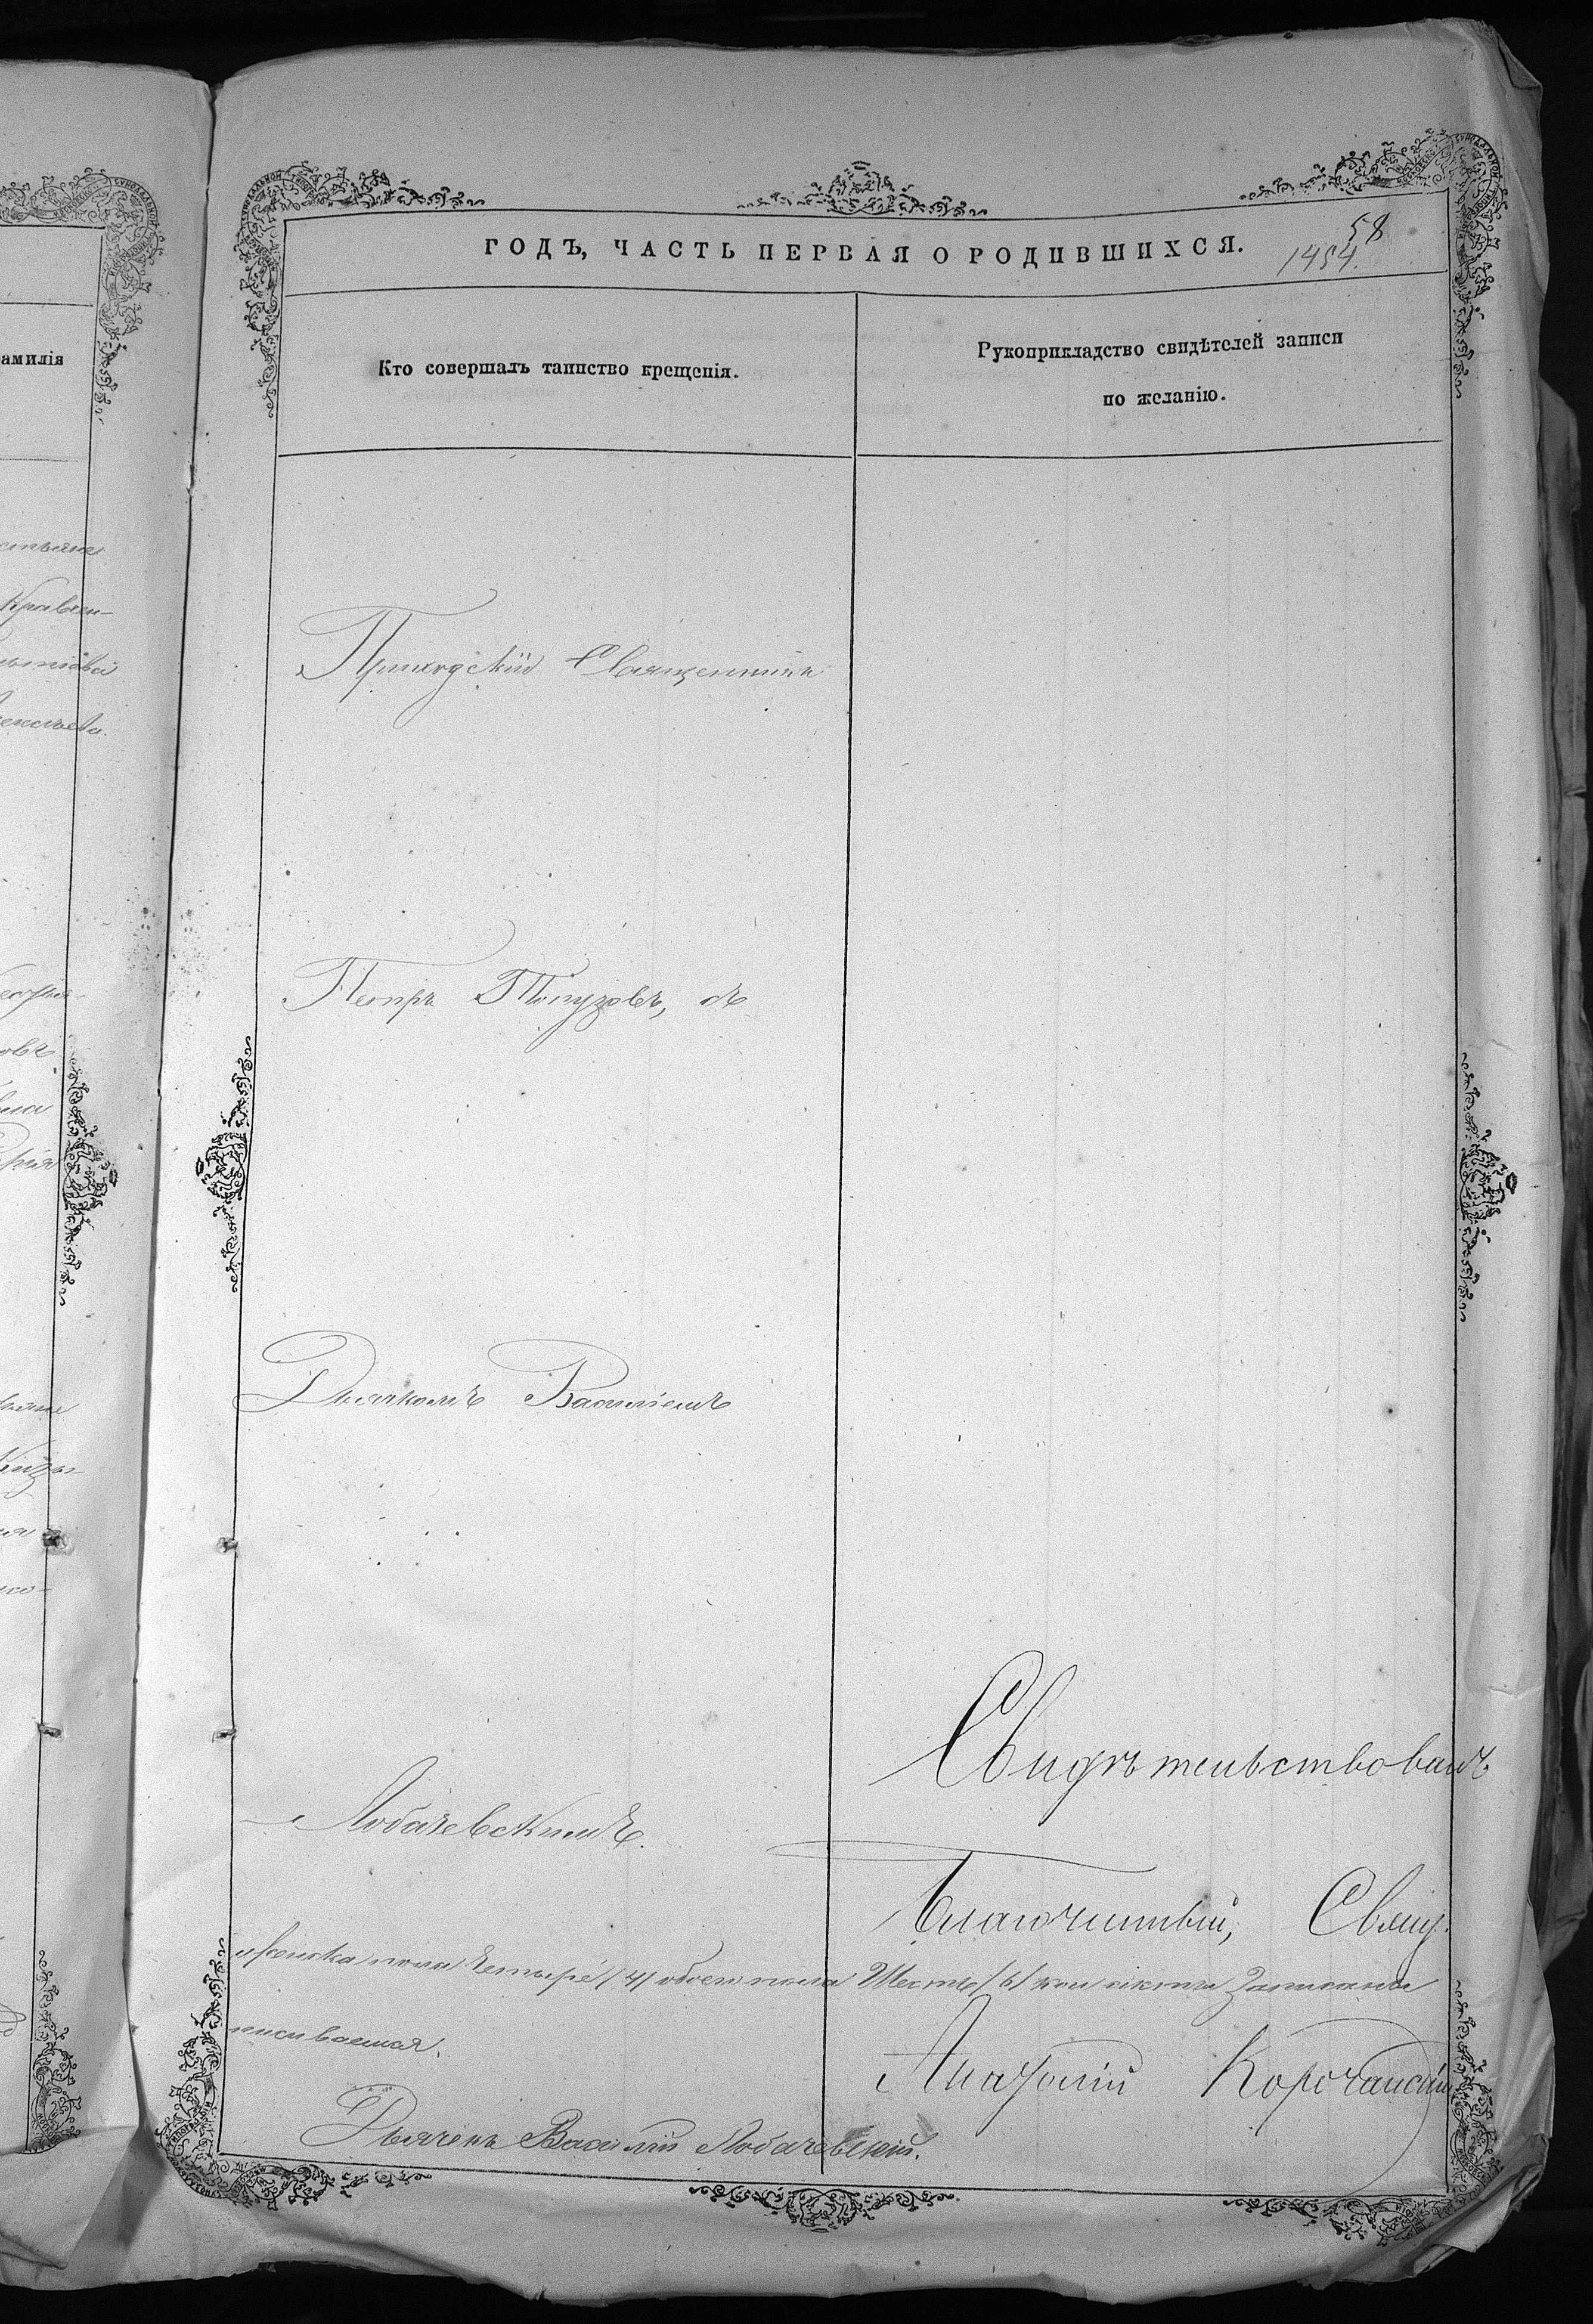 58
ГОДЪ, ЧАСТЬ ПЕРВАЯ О РОДИВШИХСЯ.
1454.
амилія
Кто совершалъ таинство крещенія.
Рукоприкладство свидѣтелей записи
по желанію.
Приходскій Священникъ
Петръ Топузовъ, съ
Дьячкомъ Василіемъ
Лобачевскимъ.
Свидѣтельствовалъ
Благочинный, Свящ.
женска пола четыре /4/ обоего пола Шесть /6/ кои записаны
Анатолій Корочанскій
Дьячекъ Василій Лобачевскій.